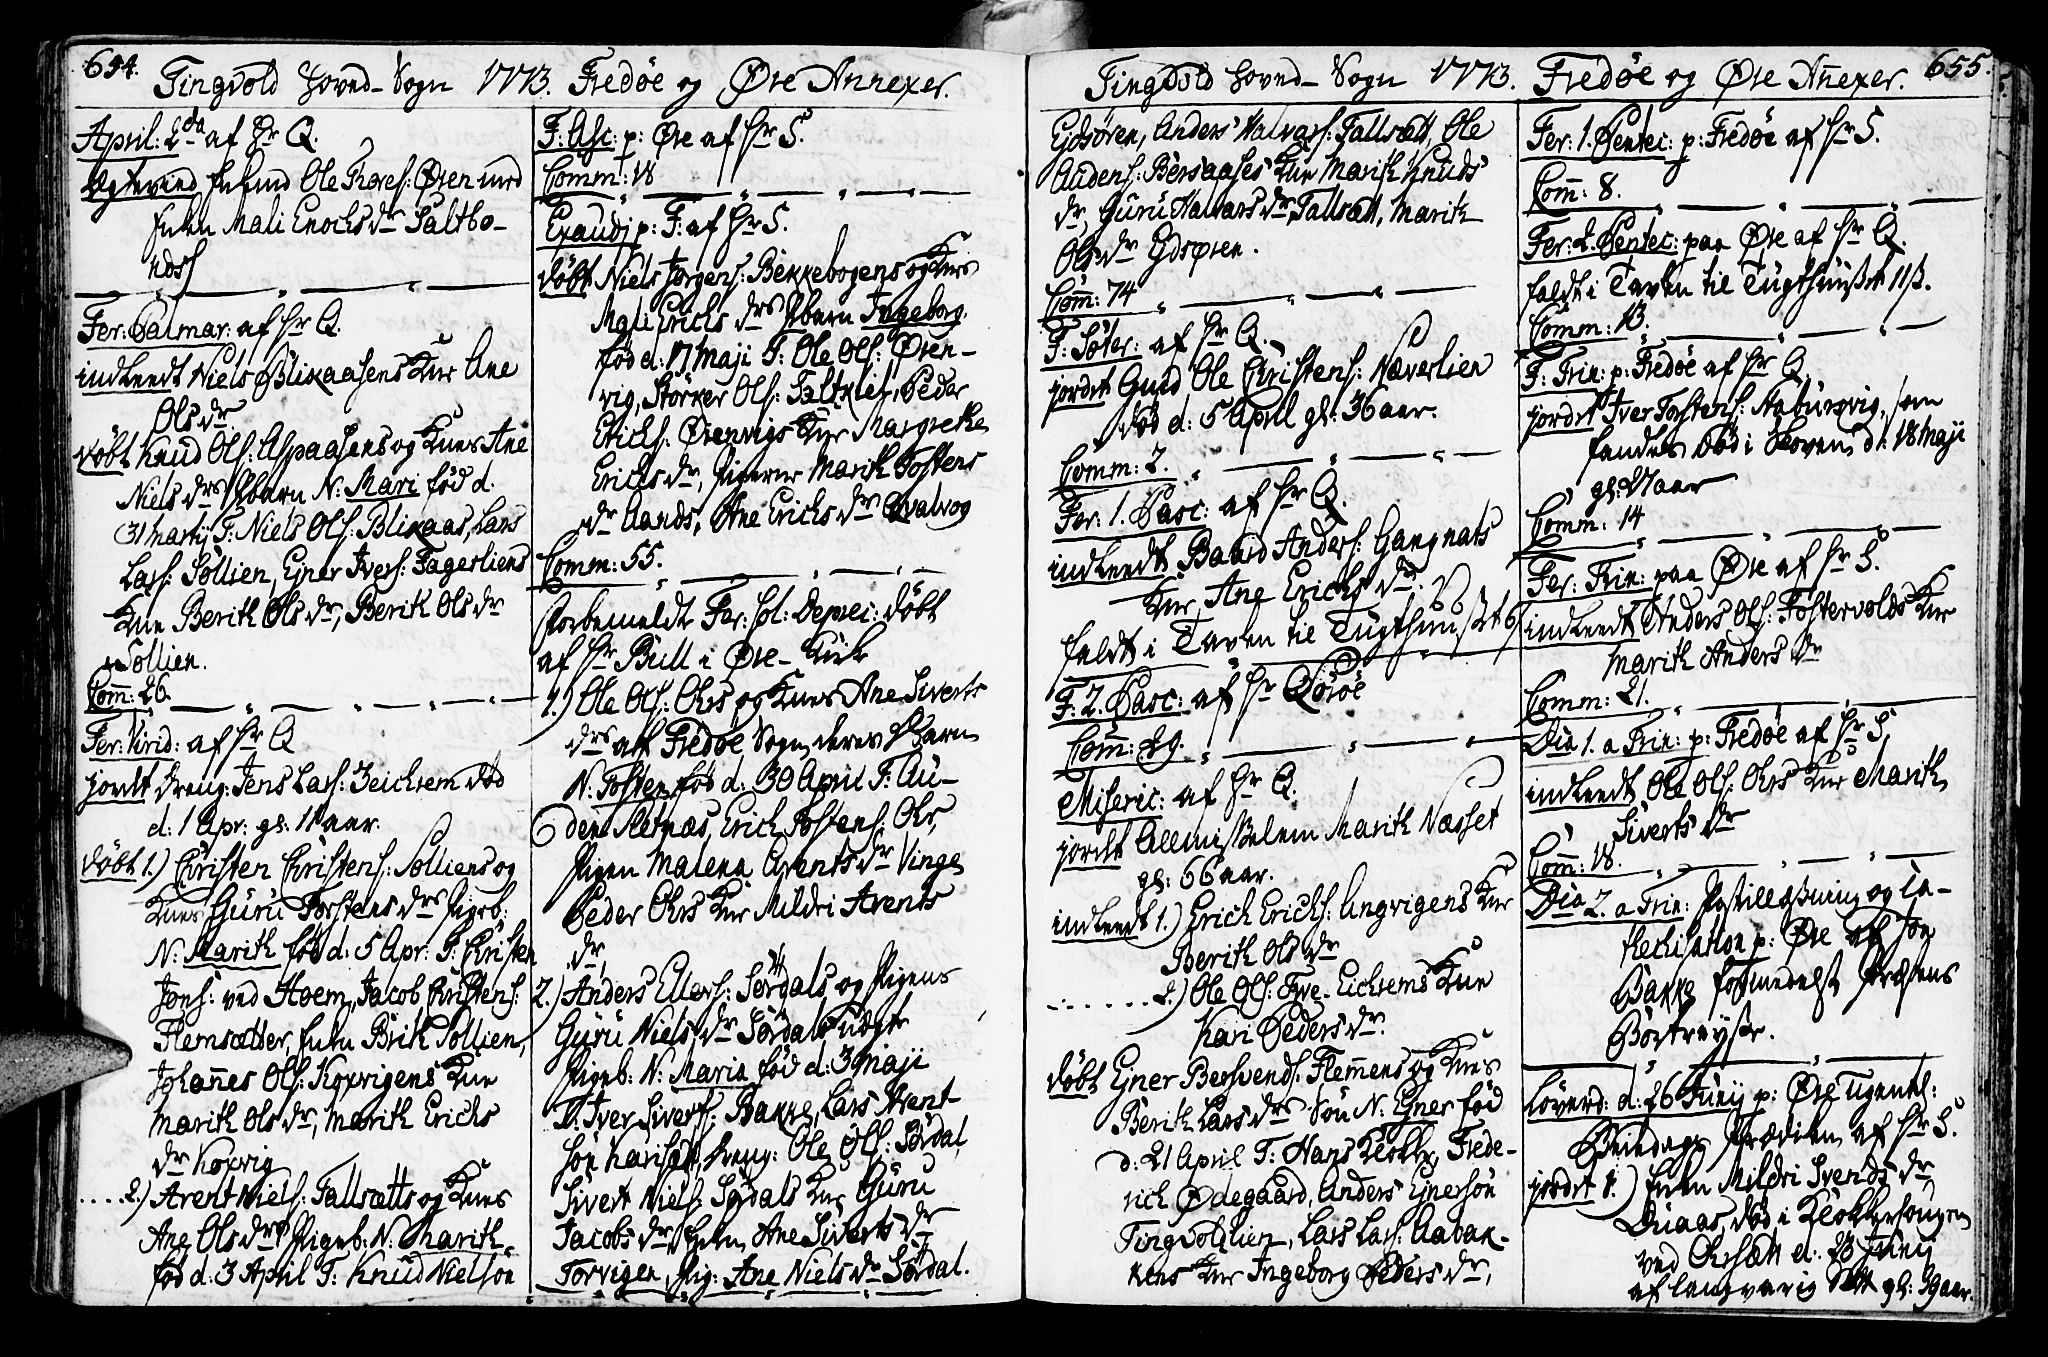 654.
Tingvold Hoved-Sogn 1773. Fredøe og Øre Annexer.
April: 2da af Hr Q.
Ægtevied Enkmd Ole Thores: Øren med
Enken Mali Enochs dr Saltbo-
Fer: Palmar: af Hr Q.
indleedt Niels Blikaasens Kne Ane
Ols dr
døbt Knud Ols: Aspaasens og Knes Ane
Niels drs Pbarn N: Mari fød d.
31 Martij T: Niels Ols: Blikaas, Lars
Lars: Sollien, Ejner Ivers: Fagerliens
Kne Berith Ols dr, Berith Ols dr
Sollien.
Com̄: 26.
Fer: Virid: af Hr Q
jordt Dreng: Jens Lars: Eichrem død
d: 1 Apr: gl: 11 aar.
døbt 1.) Christen Christens: Solliens og
Knes Guru Torstens drs Pigeb:
N: Marith fød d: 5 Apr: T: Christen
Jons: ved Hoem, Jacob Christens:
Flemsætter, Enken Brith Sollien,
Johannes Ols: Koxvigens Kne
Marith Ols dr, Marith Erichs
dr Koxvig
2.) Arent Niels: Tallsætts og Knes
Ane Ols drs Pigeb: N: Marith
fød d: 3 April T: Knud Nielsøn
F: Asc: p: Øre af Hr S.
Comm: 18
Exaudj p: F: af Hr S.
døbt Niels Jørgens: Bekkebogens og Knes
Mali Erichs drs Pbarn Ingeborg.
fød d: 17 Maji T: Ole Ols: Øren-
vig, Størker Ols: Peder
Erichs: Ørenvigs Kne Margrethe
Erichs dr, Pigerne Marith Tosters
dr Aands, Ane Erichs dr Qvalvog
Comm: 55.
forbemeldt Fer: Sol: Deprec: døbt
af Hr Bull i Øre-Kirke
1.) Ole Ols: Ohrs og Knes Ane Siverts
drs af Fredøe Sogn deres Pbarn
N: Tosten fød d: 30 April T: Au-
den Sletnæs, Erich Tostens: Ohr,
Pigen Malena Arents dr Vinge
Peder Ohrs Kne Mildri Arents
dr,
2.) Anders Ellers: Sørdals og Pigens
Guru Niels dr Sørdals uægte
Pigeb: N: Maria fød d: 3 Maji
T: Iver Sivers: Bakke, Lars Arent-
søn Dreng: Ole Ols: Sørdal,
Sivert Niels: Sørdals Kne Guru
Jacobs dr, Enken Ane Siverts dr
Torvigen, Pig: Ane Niels dr Sørdal.
655.
Tingvold Hoved-Sogn 1773. Fredøe og Øre An̄exer.
Gidsøren, Anders Halvars: Tallsætt, Ole
Audens: Bersaases Kne Marith Knuds
dr, Guru Halvars dr Tallsætt, Marith
Ols dr Gidsøren.
Com̄: 74
F: Soter: af Hr Q.
jordet Gmd Ole Christens: Næverlien
død d: 5 April gl: 36 aar.
Comm: 2.
Fer: 1. Pasc: af Hr Q.
indleedt Baard Anders: Gangnats
Kne Ane Erichs dr.
faldt i Tavlen til Tugthuuset 6
F: 2. Pasc: af Hr Qòròe
Com̄: 29.
Miseric: af Hr Q.
jordet Allmisselem Marith Næsset
gl: 66 aar.
indleedt 1.) Erich Erichs: Angvigens Kne
Berith Ols dr
2.) Ole Ols: Eichrems Kne
Kari Peders dr.
døbt Ejner Bersvends: Flemmens og Knes
Berith Lars drs Søn N: Ejner fød
d: 21 April T: Hans Klokk, Frede-
rich Ødegaard, Anders Ejnersøn
Tingvoldlien, Lars Lars: Aabak-
kens Kne Ingeborg Peders dr,
Fer: 1. Pentec: p: Fredøe af Hr S.
Com̄: 8.
Fer: 2. Pentec: paa Øre af Hr Q.
faldt i Tavlen til Tugthuuset 11 ß.
Comm: 13.
F: Trin: p: Fredøe af Hr Q.
jordet Iver Tostens: som
fandtes død i Skoven d: 18 Maji
Comm: 14
Fer: Trin: paa Øre af Hr S.
indleedt Anders Ols: Tostervolds Kne
Marith Anders dr
Comm: 21.
Dca 1. a Trin: p: Fredøe af Hr S.
indleedt Ole Ols: Ohrs Kne Marith
Siverts dr
Com̄: 18.
Dca 2. a Trin: Postillesning og Ca-
thechisation p: Øre af
Bakke formedelst Præstens
Bortreyse.
Løverd: d: 26 Junij p: Øre
Prædiken af Hr S.
jordet 1.) Enken Mildri Svends dr
Duaas, død i Klokkergangen
ved Ohrsætt d: 23 Junij
af langvarig gl: 59 aar.